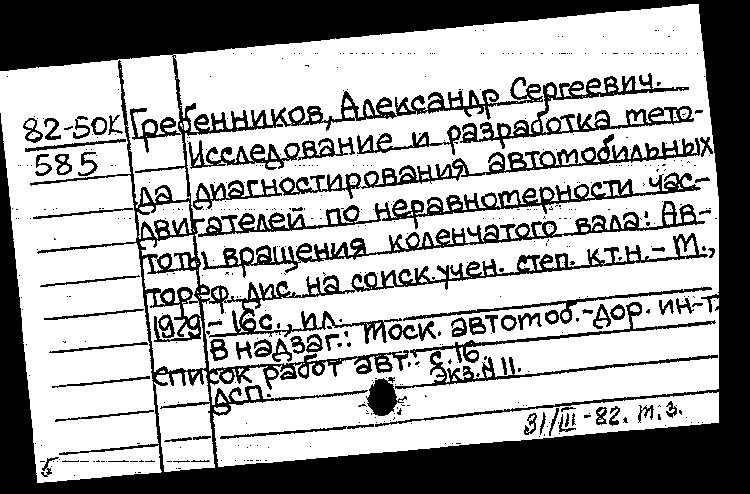 82-50К Гребенников, Александр Сергеевич.
585 Исследование и разработка мето-
да диагностирования автомобильных
двигателей по неравномерности час-
тоты вращения коленчатого вала: Ав-
тореф. дис. на соиск. учен. степ. к.т.н. - М.,
1979. - 16с., ил.
В надзаг.: Моск. автомоб.-дор. ин-т.
Список работ авт.: с.16.
ДСП. Экз. N 11.
31/III-82. м.з.